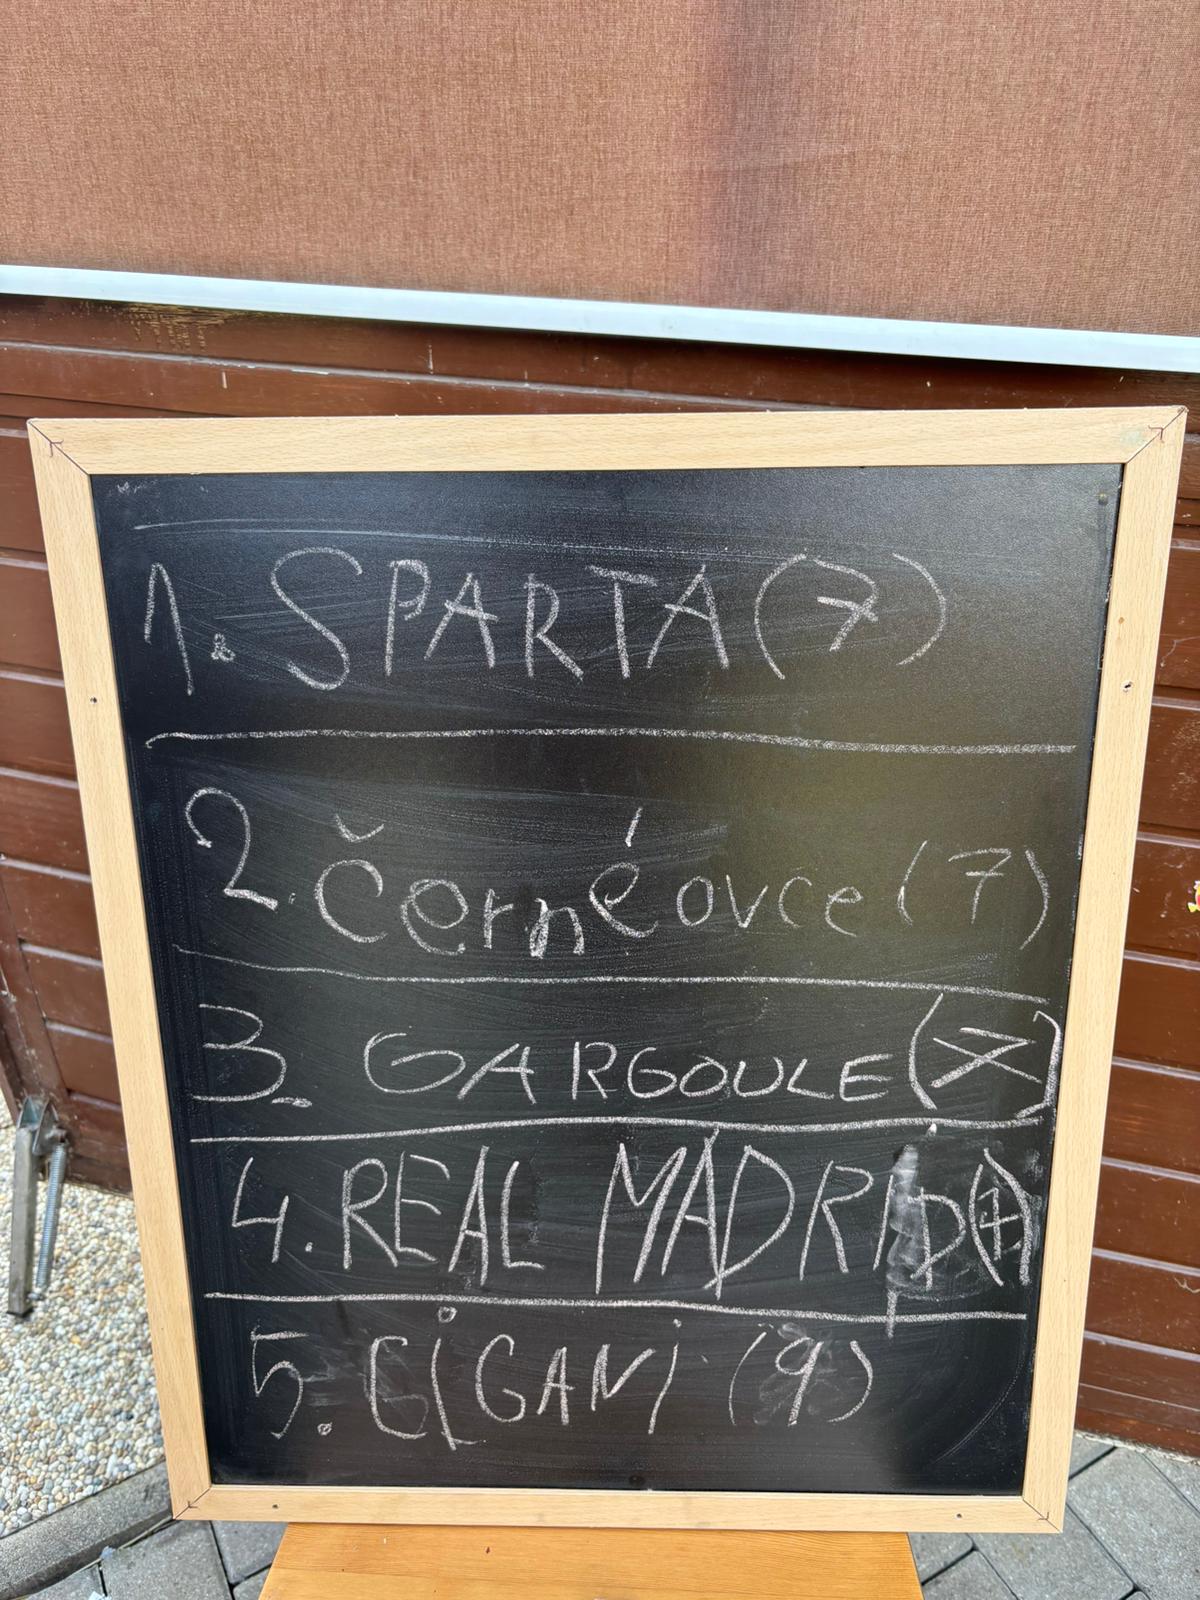 1. SPARTA (7)
2. Černé ovce (7)
3. GARGOULE (7)
4. REAL MADRID (7)
5. CIGANI (9)